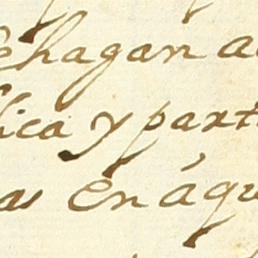 ehagan a
lica y part
as en aqu